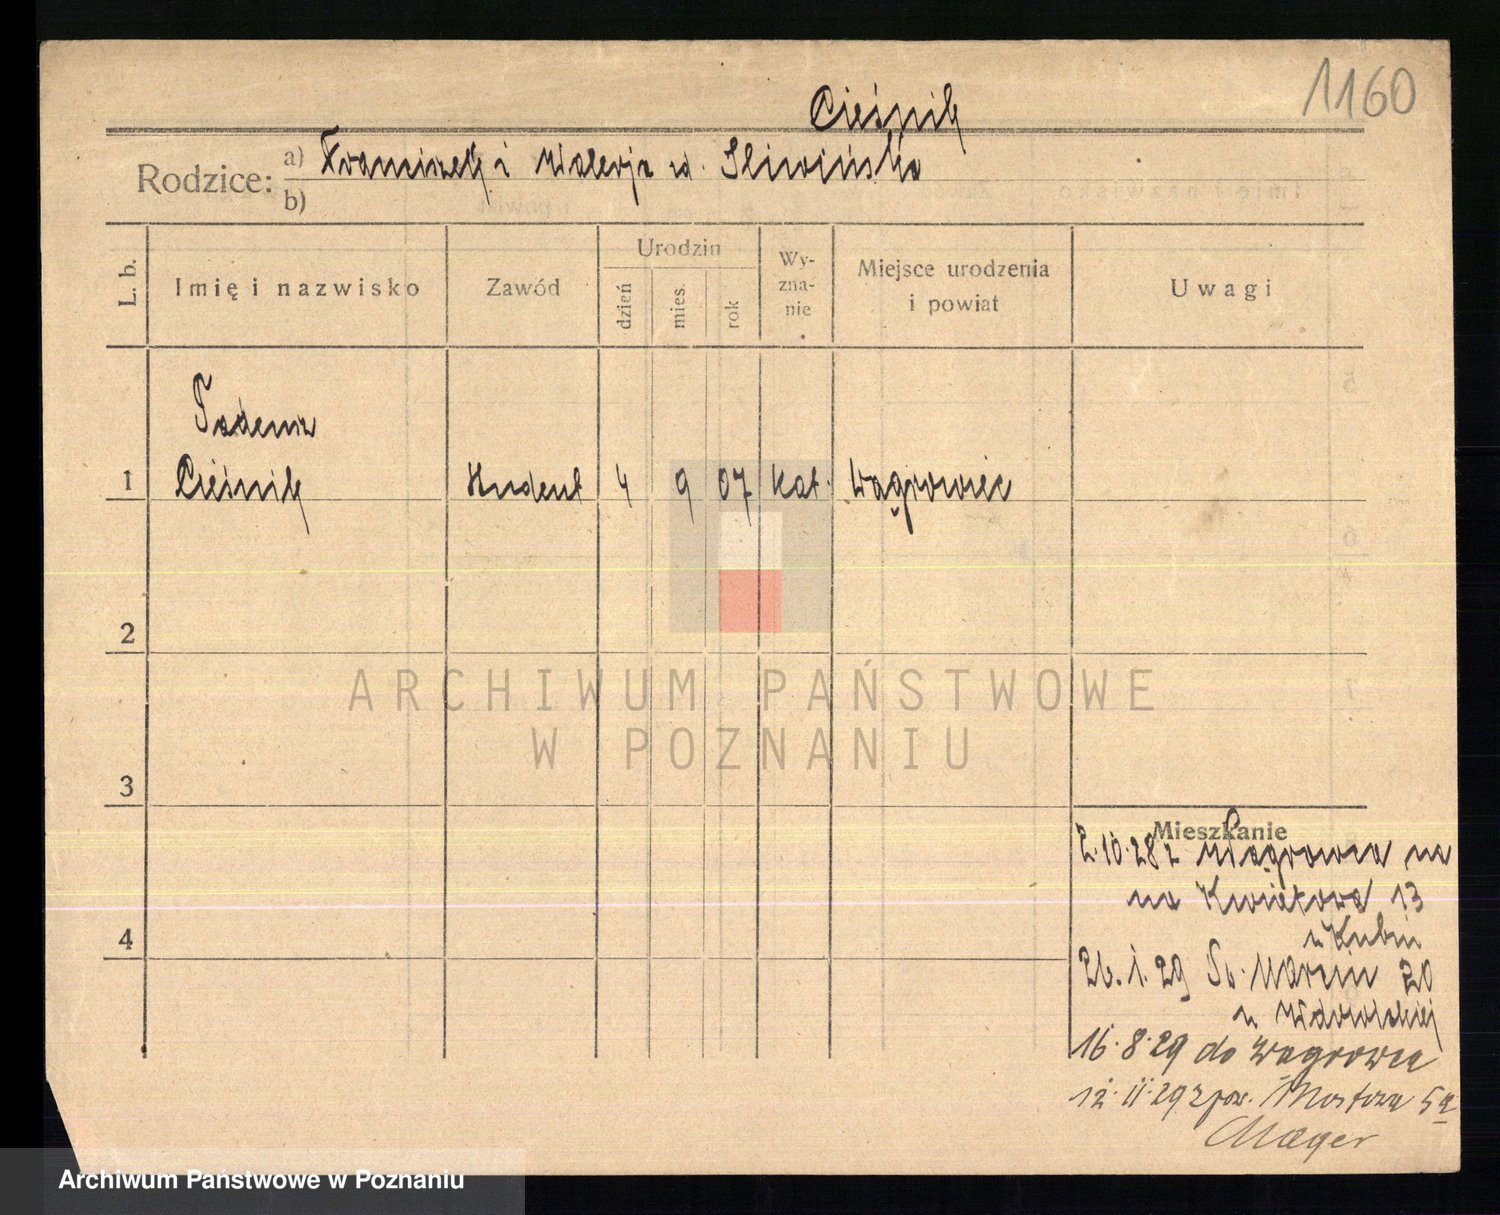 1160
Cieśnik
Rodzice:
a) Franciszek i Walerja zd. Śliwińska
b)
L. b.
Imię i nazwisko
Zawód
Urodzin
dzień
mies.
rok
Wy-
zna-
nie
Miejsce urodzenia
i powiat
Uwagi
Tadeusz
1 Cieśnik student 4 9 07 kat. Wągrowiec
2
3
4
Mieszkanie
2.10.28 z Wągrowca
na Kwiatowa 13
u Kubiu
26.1.29 Św. Marcin 20
u
16.8.29 do Wągrowca
12.11.29 Mostowa 5a
Maeger
ARCHIWUM PAŃSTWOWE
W POZNANIU
Archiwum Państwowe w Poznaniu